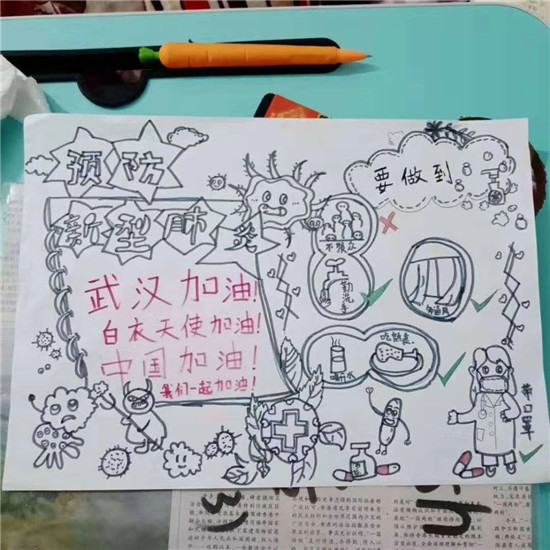 预防
新型肺炎
武汉加油!
白衣天使加油!
中国加油!
我们一起加油!
要做到
不聚众
勤洗手
吃熟食
戴口罩